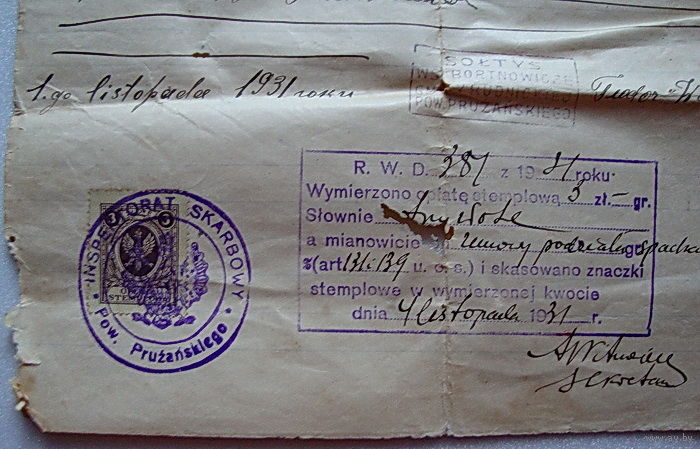 SOŁTYS
WSI BORTNOWICZE
POW. PRUŻAŃSKIEGO
1.go listopada 1931 roku Teodor
R. W. D. 387 z 1931 roku.
Wymierzono opłatę stemplową 3 zł.— gr.
Słownie trzy złote
a mianowicie umowy podziału spadku gr
%(art 131 i 139 u. o. s.) i skasowano znaczki
stemplowe w wymierzonej kwocie
dnia 4 listopada 1931 r.
INSPEKTORAT SKARBOWY
Pow. Prużańskiego
Sekretarz